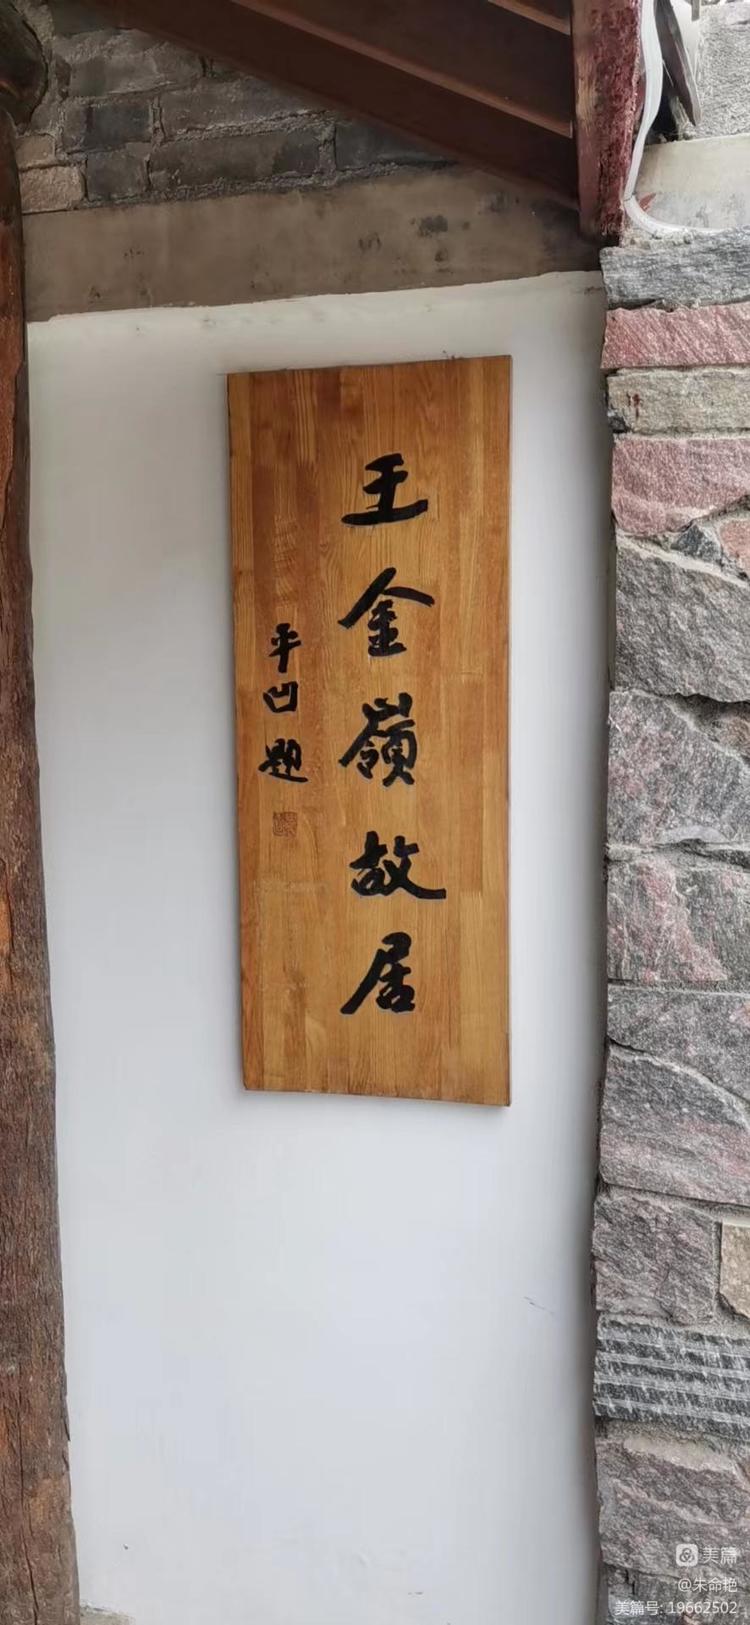 王金嶺故居
平凹題
美篇
@朱命艳
美篇号: 19662502